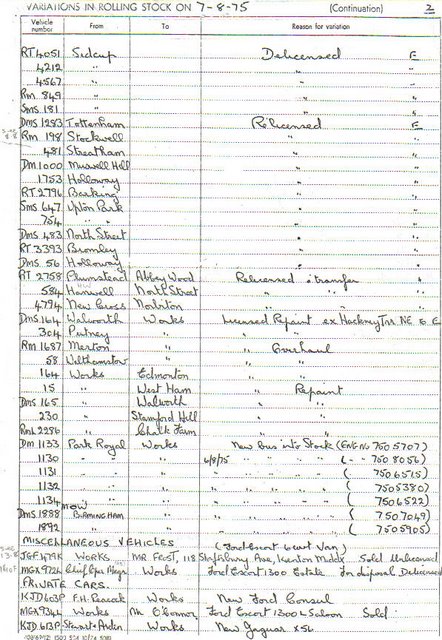 VARIATIONS IN ROLLING STOCK ON 7-8-75 (Continuation) 2
Vehicle number From To Reason for variation
RT 4051 Sidcup Delicensed E
4212 " "
4567 " "
Rm 849 " "
Sms 181 " "
Dms 1283 Tottenham Relicensed E
Rm 198 Stockwell "
481 Streatham "
Dm 1000 Muswell Hill "
1753 Holloway "
RT 2796 Barking "
Sms 647 Upton Park "
754 " " "
Dms 483 North Street "
RT 3393 Bromley "
Dms 56 Holloway "
RT 2758 Plumstead Abbey Wood Relicensed & transfer "
584 Hanwell North Street " " "
4794 New Cross Norbiton " " "
Dms 164 Walworth Works Licensed Repaint ex Hackney Trs NE to E
304 Putney " "
Rm 1687 Merton " " Overhaul
58 Walthamstow " " "
164 Works Edmonton " "
15 " West Ham " Repaint
Dms 165 " Walworth " "
230 " Stamford Hill " "
RmL 2286 " Chalk Farm " "
Dm 1133 Park Royal Works New bus into Stock (ENG NO 7505707)
1130 " " 6/8/75 " " " " ( " " 7508056)
1131 " " " ( 7506515)
1132 " " " ( 7505380)
1134 " " " ( 7506522)
Dms 1888 MCW BIRMINGHAM " " ( 7507049)
1892 " " " ( 7505905)
MISCELLANEOUS VEHICLES (Ford Escort 6cwt Van)
JGF 479K WORKS MR 118 Ave, Kenton Middx Sold Unlicensed
MGX 972H Works Ford Escort 1300 Estate For disposal Delicensed
PRIVATE CARS.
KJD 610P F.H. Peacock Works New Ford Consul
MGX 934H Works Mr O'Connor, Ford Escort 1300 Saloon Sold
KJD 613P Works New Jaguar XJ6